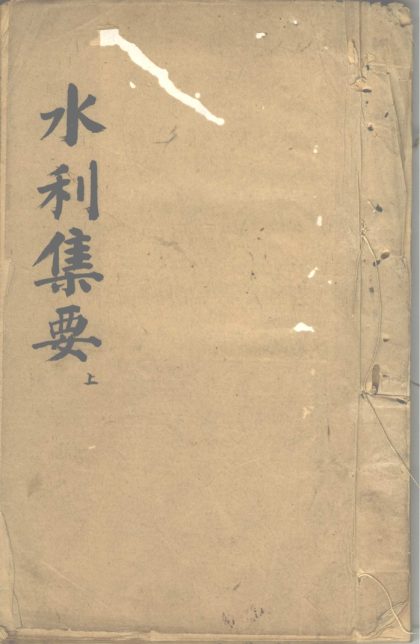 水利集要
上